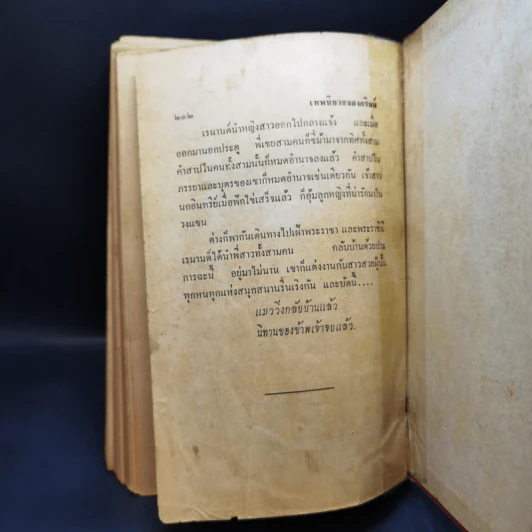 ๒๓๒
เรนานด์นำหญิงสาวออกไปกลางแจ้ง และเมื่อ
ออกมานอกประตู พี่เขยสามคนก็ขี่ม้ามาจากทิศทั้งสาม
คำสาปในคนทั้งสามนั้นก็หมดอำนาจลงแล้ว คำสาปใน
ภรรยาและบุตรของเขาก็หมดอำนาจเช่นเดียวกัน เจ้าสาว
นกอินทรีย์เมื่อฟักไข่เสร็จแล้ว ก็อุ้มลูกหญิงที่น่ารักมาใน
วงแขน
ต่างก็พากันเดินทางไปเฝ้าพระราชา และพระราชินี
เรนานด์ได้นำพี่สาวทั้งสามคน กลับบ้านด้วย
การฉะนี้ อยู่มาไม่นาน เขาก็แต่งงานกับสาวสวยผู้นั้น
ทุกหนทุกแห่งสนุกสนานรื่นเริงกัน และบัดนี้....
แมววิ่งกลับบ้านแล้ว
นิทานของข้าพเจ้าจบแล้ว.